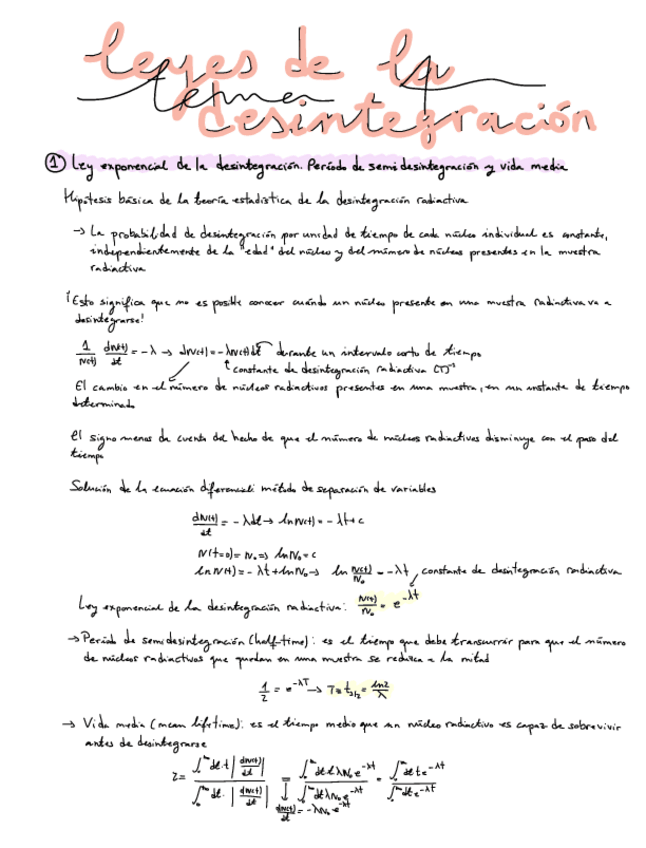 leyes de la
tema 4
desintegración
① Ley exponencial de la desintegración. Período de semidesintegración y vida media
Hipótesis básica de la teoría estadística de la desintegración radiactiva
→ La probabilidad de desintegración por unidad de tiempo de cada núcleo individual es constante,
independientemente de la "edad" del núcleo y del número de núcleos presentes en la muestra
radiactiva
¡Esto significa que no es posible conocer cuándo un núcleo presente en una muestra radiactiva va a
desintegrarse!
1/N(t) dN(t)/dt = -λ → dN(t) = -λN(t)dt durante un intervalo corto de tiempo
constante de desintegración radiactiva (T)⁻¹
El cambio en el número de núcleos radiactivos presentes en una muestra, en un instante de tiempo
determinado
el signo menos da cuenta del hecho de que el número de núcleos radiactivos disminuye con el paso del
tiempo
Solución de la ecuación diferencial: método de separación de variables
dN(t)/dt = -λdt → lnN(t) = -λt+c
N(t=0) = N₀ => lnN₀ = c
lnN(t) = -λt + lnN₀ → ln N(t)/N₀ = -λt, constante de desintegración radiactiva
Ley exponencial de la desintegración radiactiva: N(t)/N₀ = e^-λt
→ Período de semidesintegración (half-time): es el tiempo que debe transcurrir para que el número
de núcleos radiactivos que quedan en una muestra se reduzca a la mitad
1/2 = e^-λT → T ≡ t₁/₂ = ln2/λ
→ Vida media (mean lifetime): es el tiempo medio que un núcleo radiactivo es capaz de sobrevivir
antes de desintegrarse
τ = ∫₀^∞ dt·t |dN(t)/dt| / ∫₀^∞ dt· |dN(t)/dt| = ∫₀^∞ dt t λN₀e^-λt / ∫₀^∞ dt λN₀e^-λt = ∫₀^∞ dt t e^-λt / ∫₀^∞ dt e^-λt
dN(t)/dt = -λN₀e^-λt